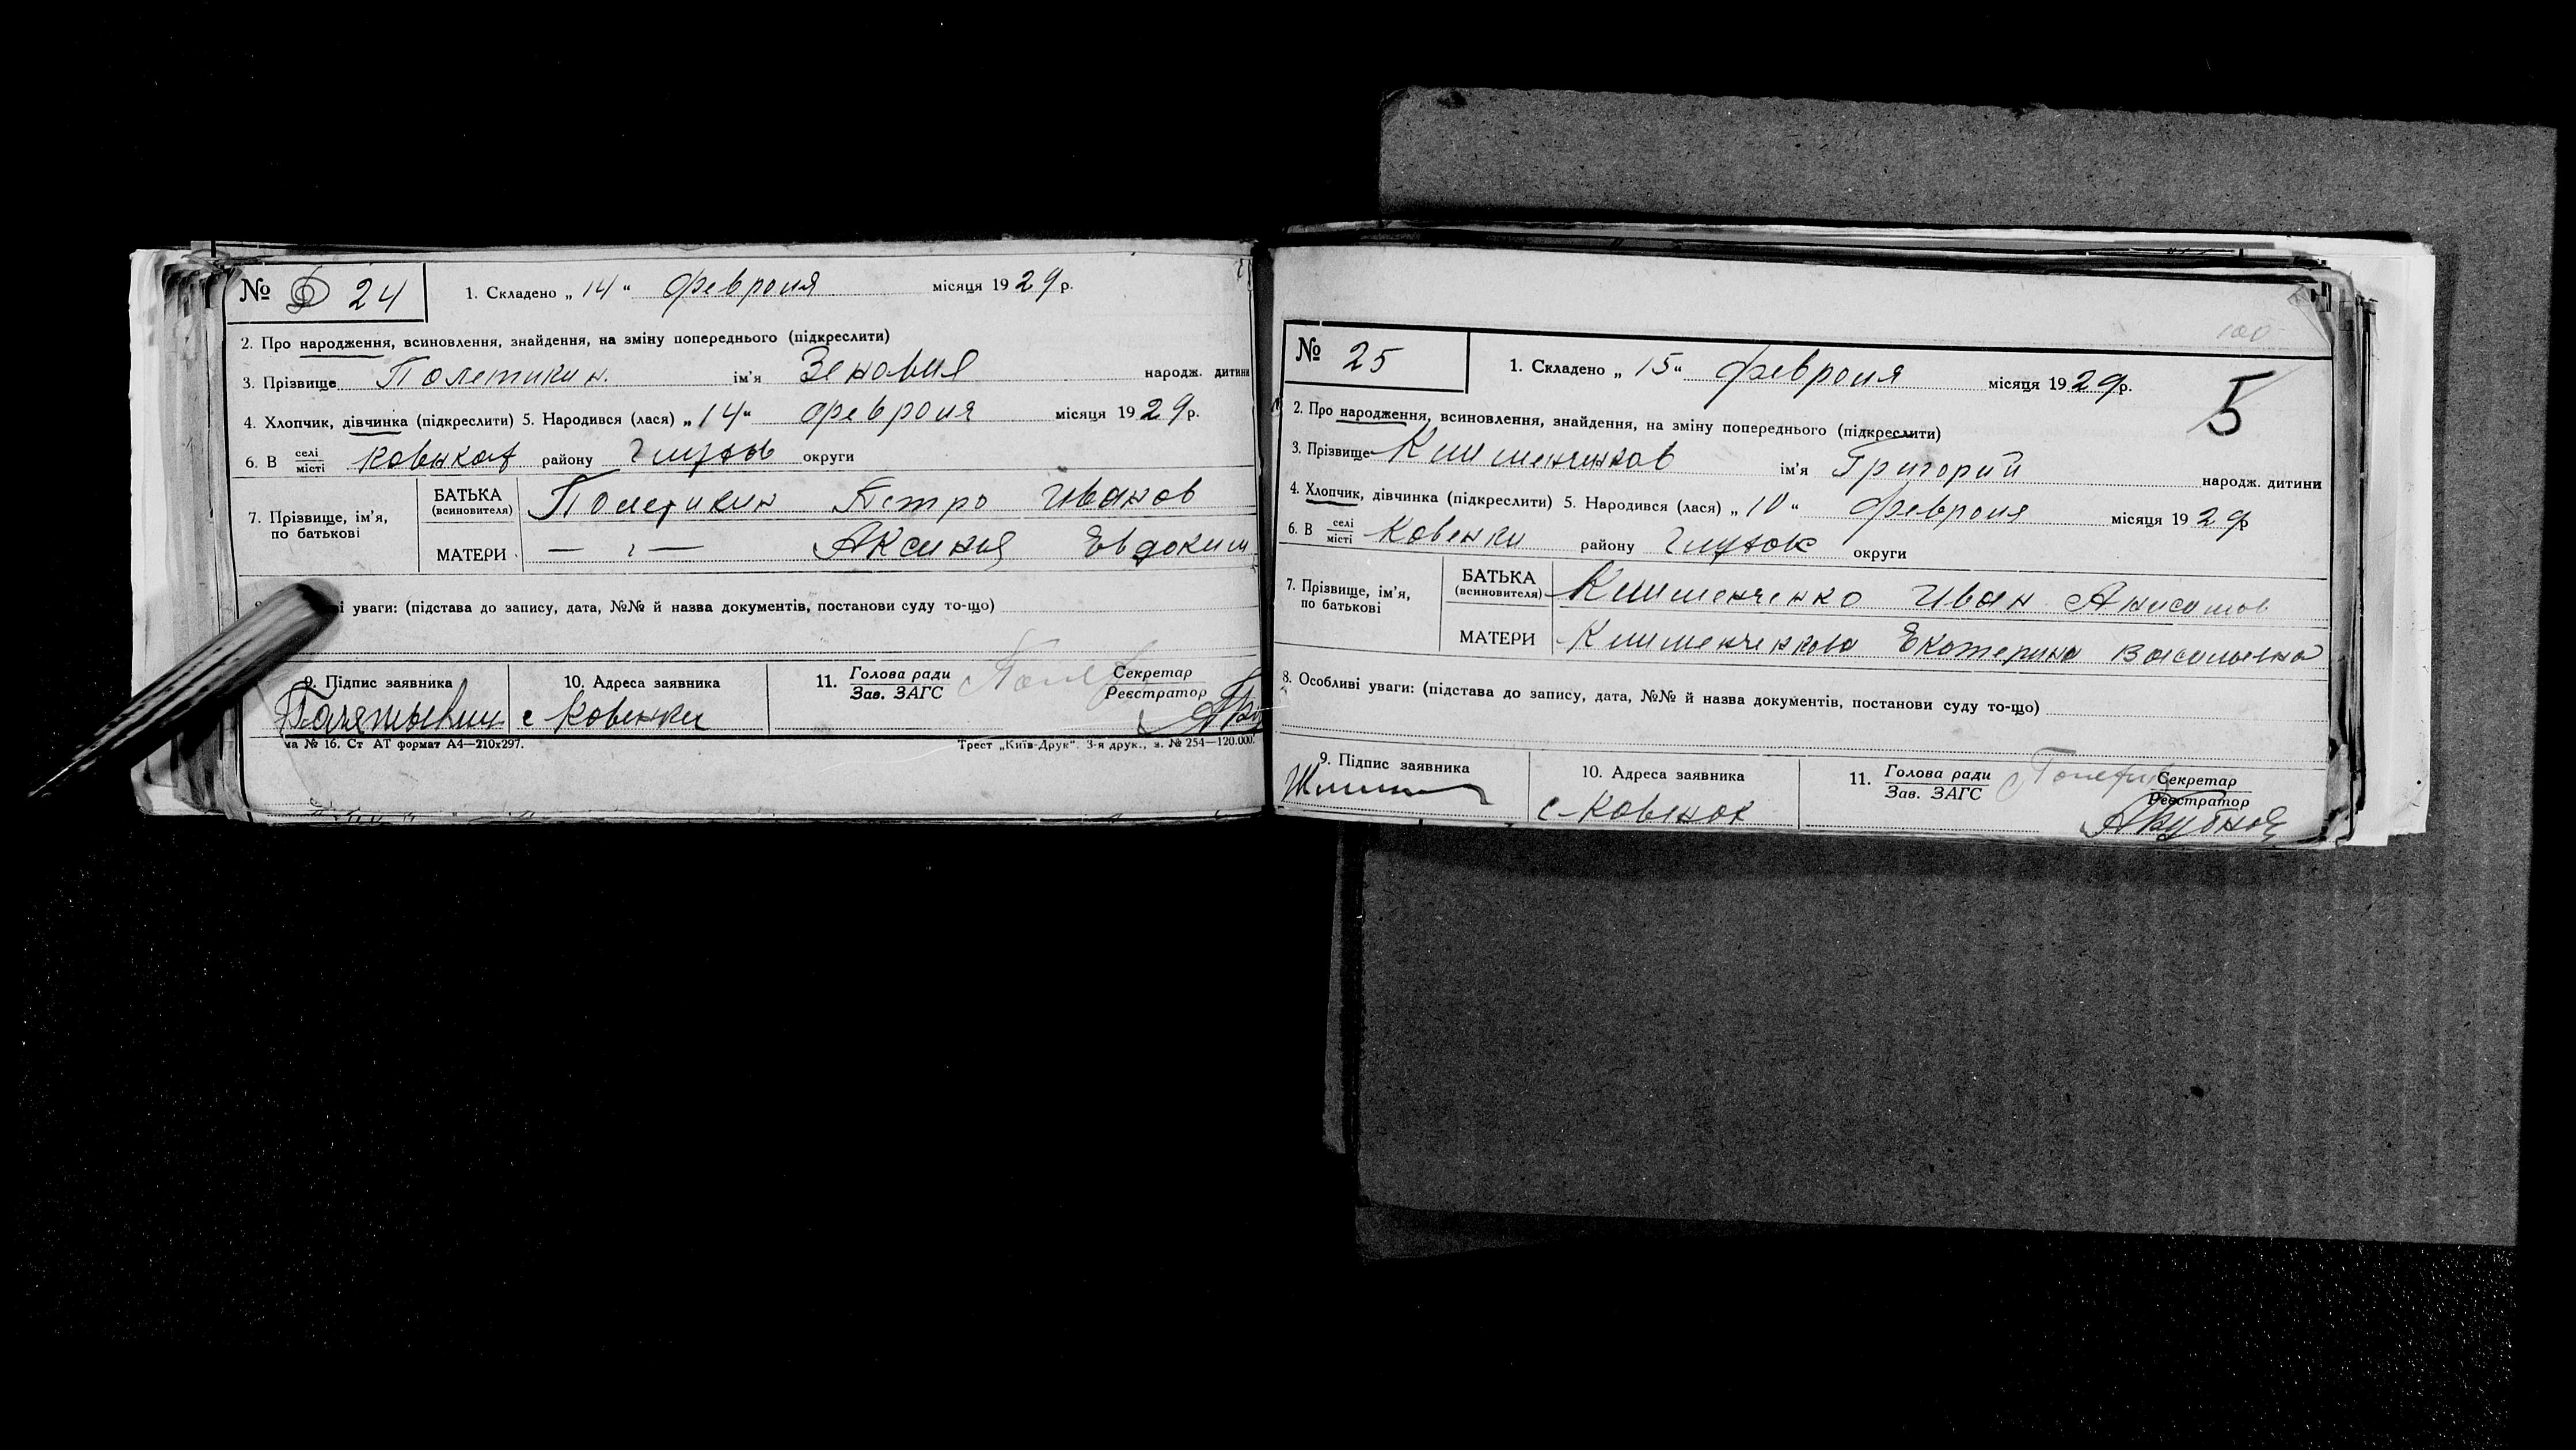 № 24
1. Складено „ 14 " февроля місяця 1929 р.
2. Про народження, всиновлення, знайдення, на зміну попереднього (підкреслити)
3. Прізвище Полетикин. ім'я Зеновия народж. дитини
4. Хлопчик, дівчинка (підкреслити) 5. Народився (лася) „ 14 " февроля місяця 1929 р.
6. В селі місті району округи
7. Прізвище, ім'я, по батькові
БАТЬКА (всиновителя) Полетикин Петро Иванов
МАТЕРИ — „ — Аксиния Евдоким
і уваги: (підстава до запису, дата, №№ й назва документів, постанови суду то-що)
9. Підпис заявника
10. Адреса заявника
с Ковенки
11. Голова ради
Зав. ЗАГС
Секретар
Реєстратор
ма № 16. Ст АТ формат А4—210х297.
Трест „Київ-Друк". 3-я друк., з. № 254—120.000.
100
5
№ 25
1. Складено „ 15 " февроля місяця 1929 р.
2. Про народження, всиновлення, знайдення, на зміну попереднього (підкреслити)
3. Прізвище Клименченков ім'я Григорий народж. дитини
4. Хлопчик, дівчинка (підкреслити) 5. Народився (лася) „ 10 " февроля місяця 1929 р
6. В селі місті Ковенки району округи
7. Прізвище, ім'я, по батькові
БАТЬКА (всиновителя) Клименченко Иван Анисимов
МАТЕРИ Клименченкова Екатерина Васильевна
8. Особливі уваги: (підстава до запису, дата, №№ й назва документів, постанови суду то-що)
9. Підпис заявника
10. Адреса заявника
с Ковенок
11. Голова ради
Зав. ЗАГС
Секретар
Реєстратор